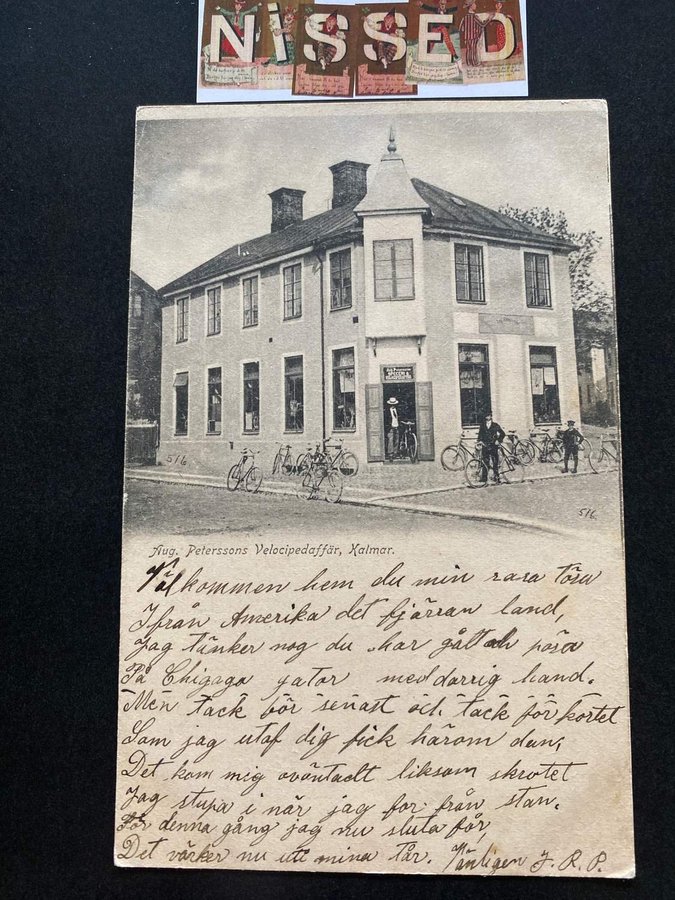 NISSED
Aug. Peterssons Velocipedaffär, Kalmar.
5/6
5/6.
Välkommen hem du min rara tösa
Ifrån Amerika det fjärran land,
Jag tänker nog du har gått och pösa
På Chigago gator med darrig hand.
Men tack för senast och tack för kortet
Som jag utaf dig fick härom dan,
Det kom mig oväntadt liksom skrotet
Jag stupa i när jag for från stan.
För denna gång jag nu sluta får,
Det värker nu uti mina tår. Vänligen J. R. P.